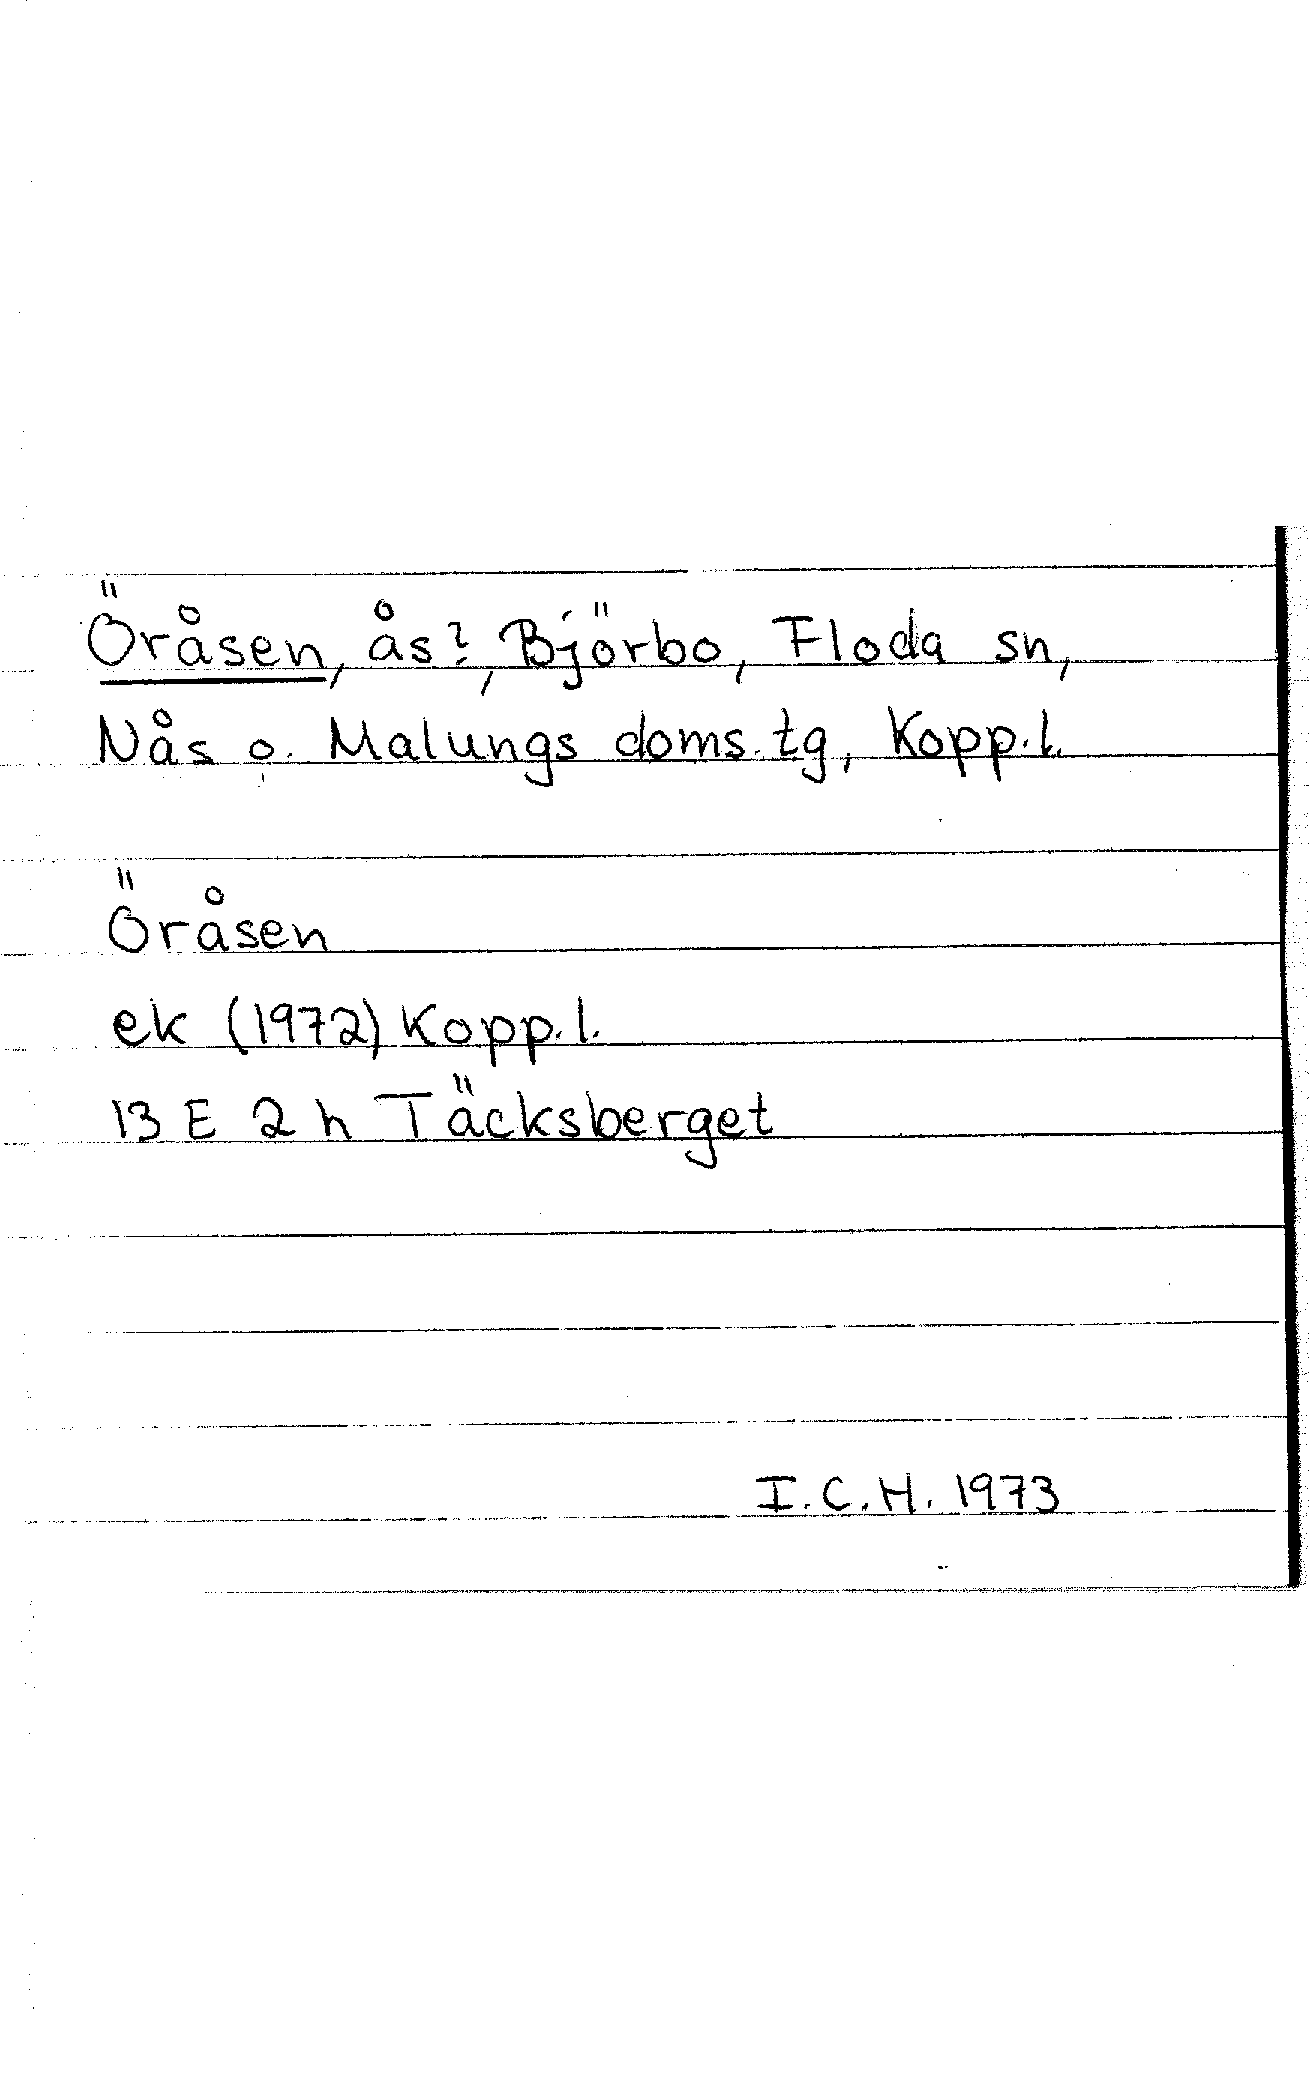 Öråsen, ås?, Björbo, Floda sn,
Nås o. Malungs doms.tg, Kopp.l.
Öråsen
ek (1972) Kopp.l.
13 E 2 h Täcksberget
I.C.H. 1973